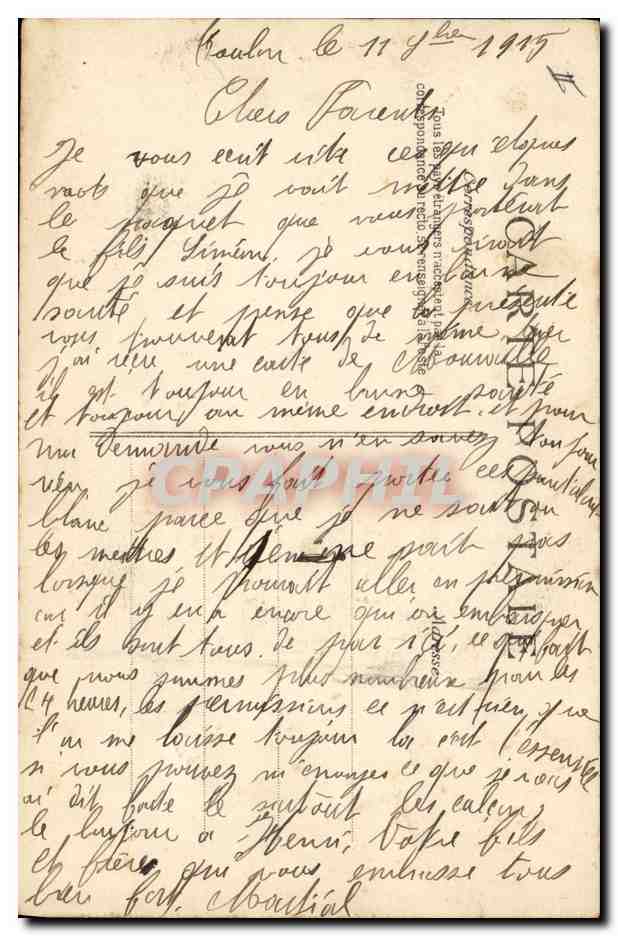 Toulon le 11 9bre 1915
Chers Parents
Je vous ecrit vite ces quelques
mots que je vait mettre dans
le paquet que vous
le fils Siméon, je vous
que je suis toujour en bonne
santé et pense que la présente
vous trouverat tous de même hier
j'ai reçu une carte de
il est toujour en bonne santé
et toujour au même endroit. et pour
ma demande vous n'en savez toujour
rien je vous fait porter ce pantalon
blanc parce que je ne sait ou
les mettres et je ne sait pas
lorsque je pourrait aller en permission
car il y en a encore qui on embarquer
et ils sont tous de par ici, ce qui fait
que nous sommes plus nombreux pour les
24 heures, les permissions ce n'est rien, que
l'on me laisse toujour la c'est l'essentiel
si vous pouvez m'envoyer ce que je vous
ai dit surtout les caleçons
le bonjour a Henri, Votre fils
et frère qui vous embrasse tous
bien fort Martial
CARTE POSTALE
Correspondance
Tous les pays étrangers n'acceptent pas la
correspondance au recto, se renseigner à la Poste
Adresse
CPAPHIL